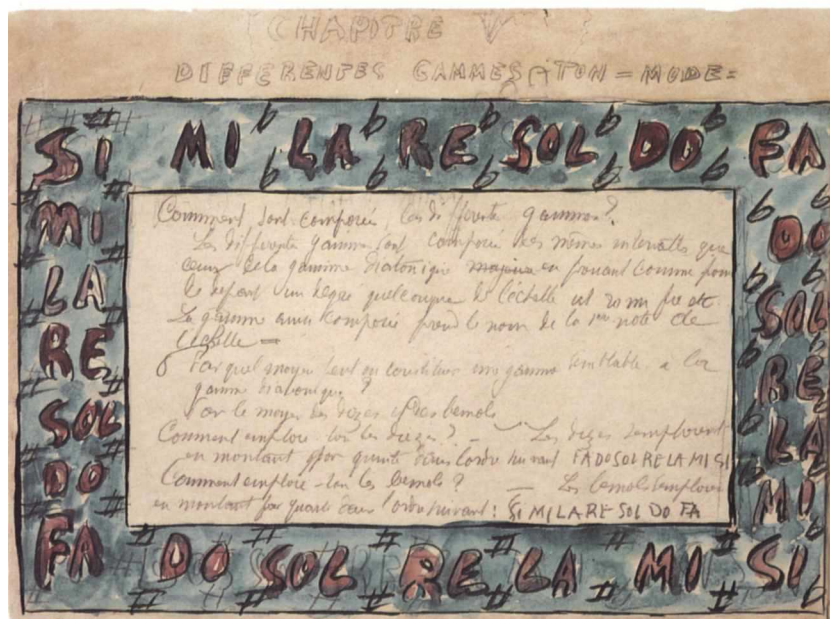 CHAPITRE V
DIFFERENTES GAMMES TON = MODE =
SI MI LA RE SOL DO FA
MI
LA
RE
SOL
DO
FA
DO
SOL
RE
LA
MI
Comment sont composées les différente gammes ?
Les différente gamme sont composée des mêmes intervalles que
ceux de la gamme diatonique majeure en prenant comme
de départ un degré quelconque de l'échelle ut ré mi fa etc
La gamme ainsi composée prend le nom de la 1re note de
l'échelle =
Par quel moyen peut on constituer une gamme semblable a la
gamme diatonique ?
Par le moyen des dièzes et des bemols
Comment emploie-ton les diezes ? — Les diezes semploient
en montant par quinte dans l'ordre suivant FA DO SOL RE LA MI SI
Comment emploie-ton les bemols ? — Les bemols
en montant par quarte dans l'ordre suivant : SI MI LA RE SOL DO FA
DO SOL RE LA MI SI